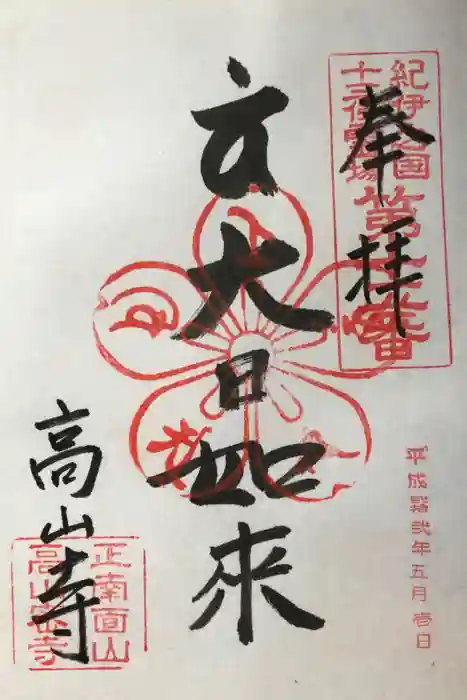 奉拝
紀伊之国
十三佛霊場
第 番
大日如来
高山寺
正南面山
高山 寺
平成 弐年五月壱日